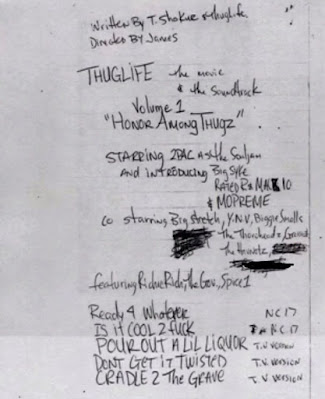 Written By T. Shakur & thuglife
Directed By James
THUGLIFE the movie
& the soundtrack
Volume 1
"HONOR AMONG THUGZ"
STARRING 2PAC as the Souljaw
AND INTRODUCING Big Syke
RATED R & MAC 10
& MOPREME
Co starring Big Stretch, Y.N.V, Biggie Smalls
The Thorcheadz,
The
featuring Richie Rich, The Gov, Spice 1
Ready 4 Whatever NC 17
IS it COOL 2 fuck NC 17
POUR OUT A LIL LIQUOR T.V VERSION
DONT GET iT TWISTED T.V. VERSION
CRADLE 2 The GRAVE T.V VERSION